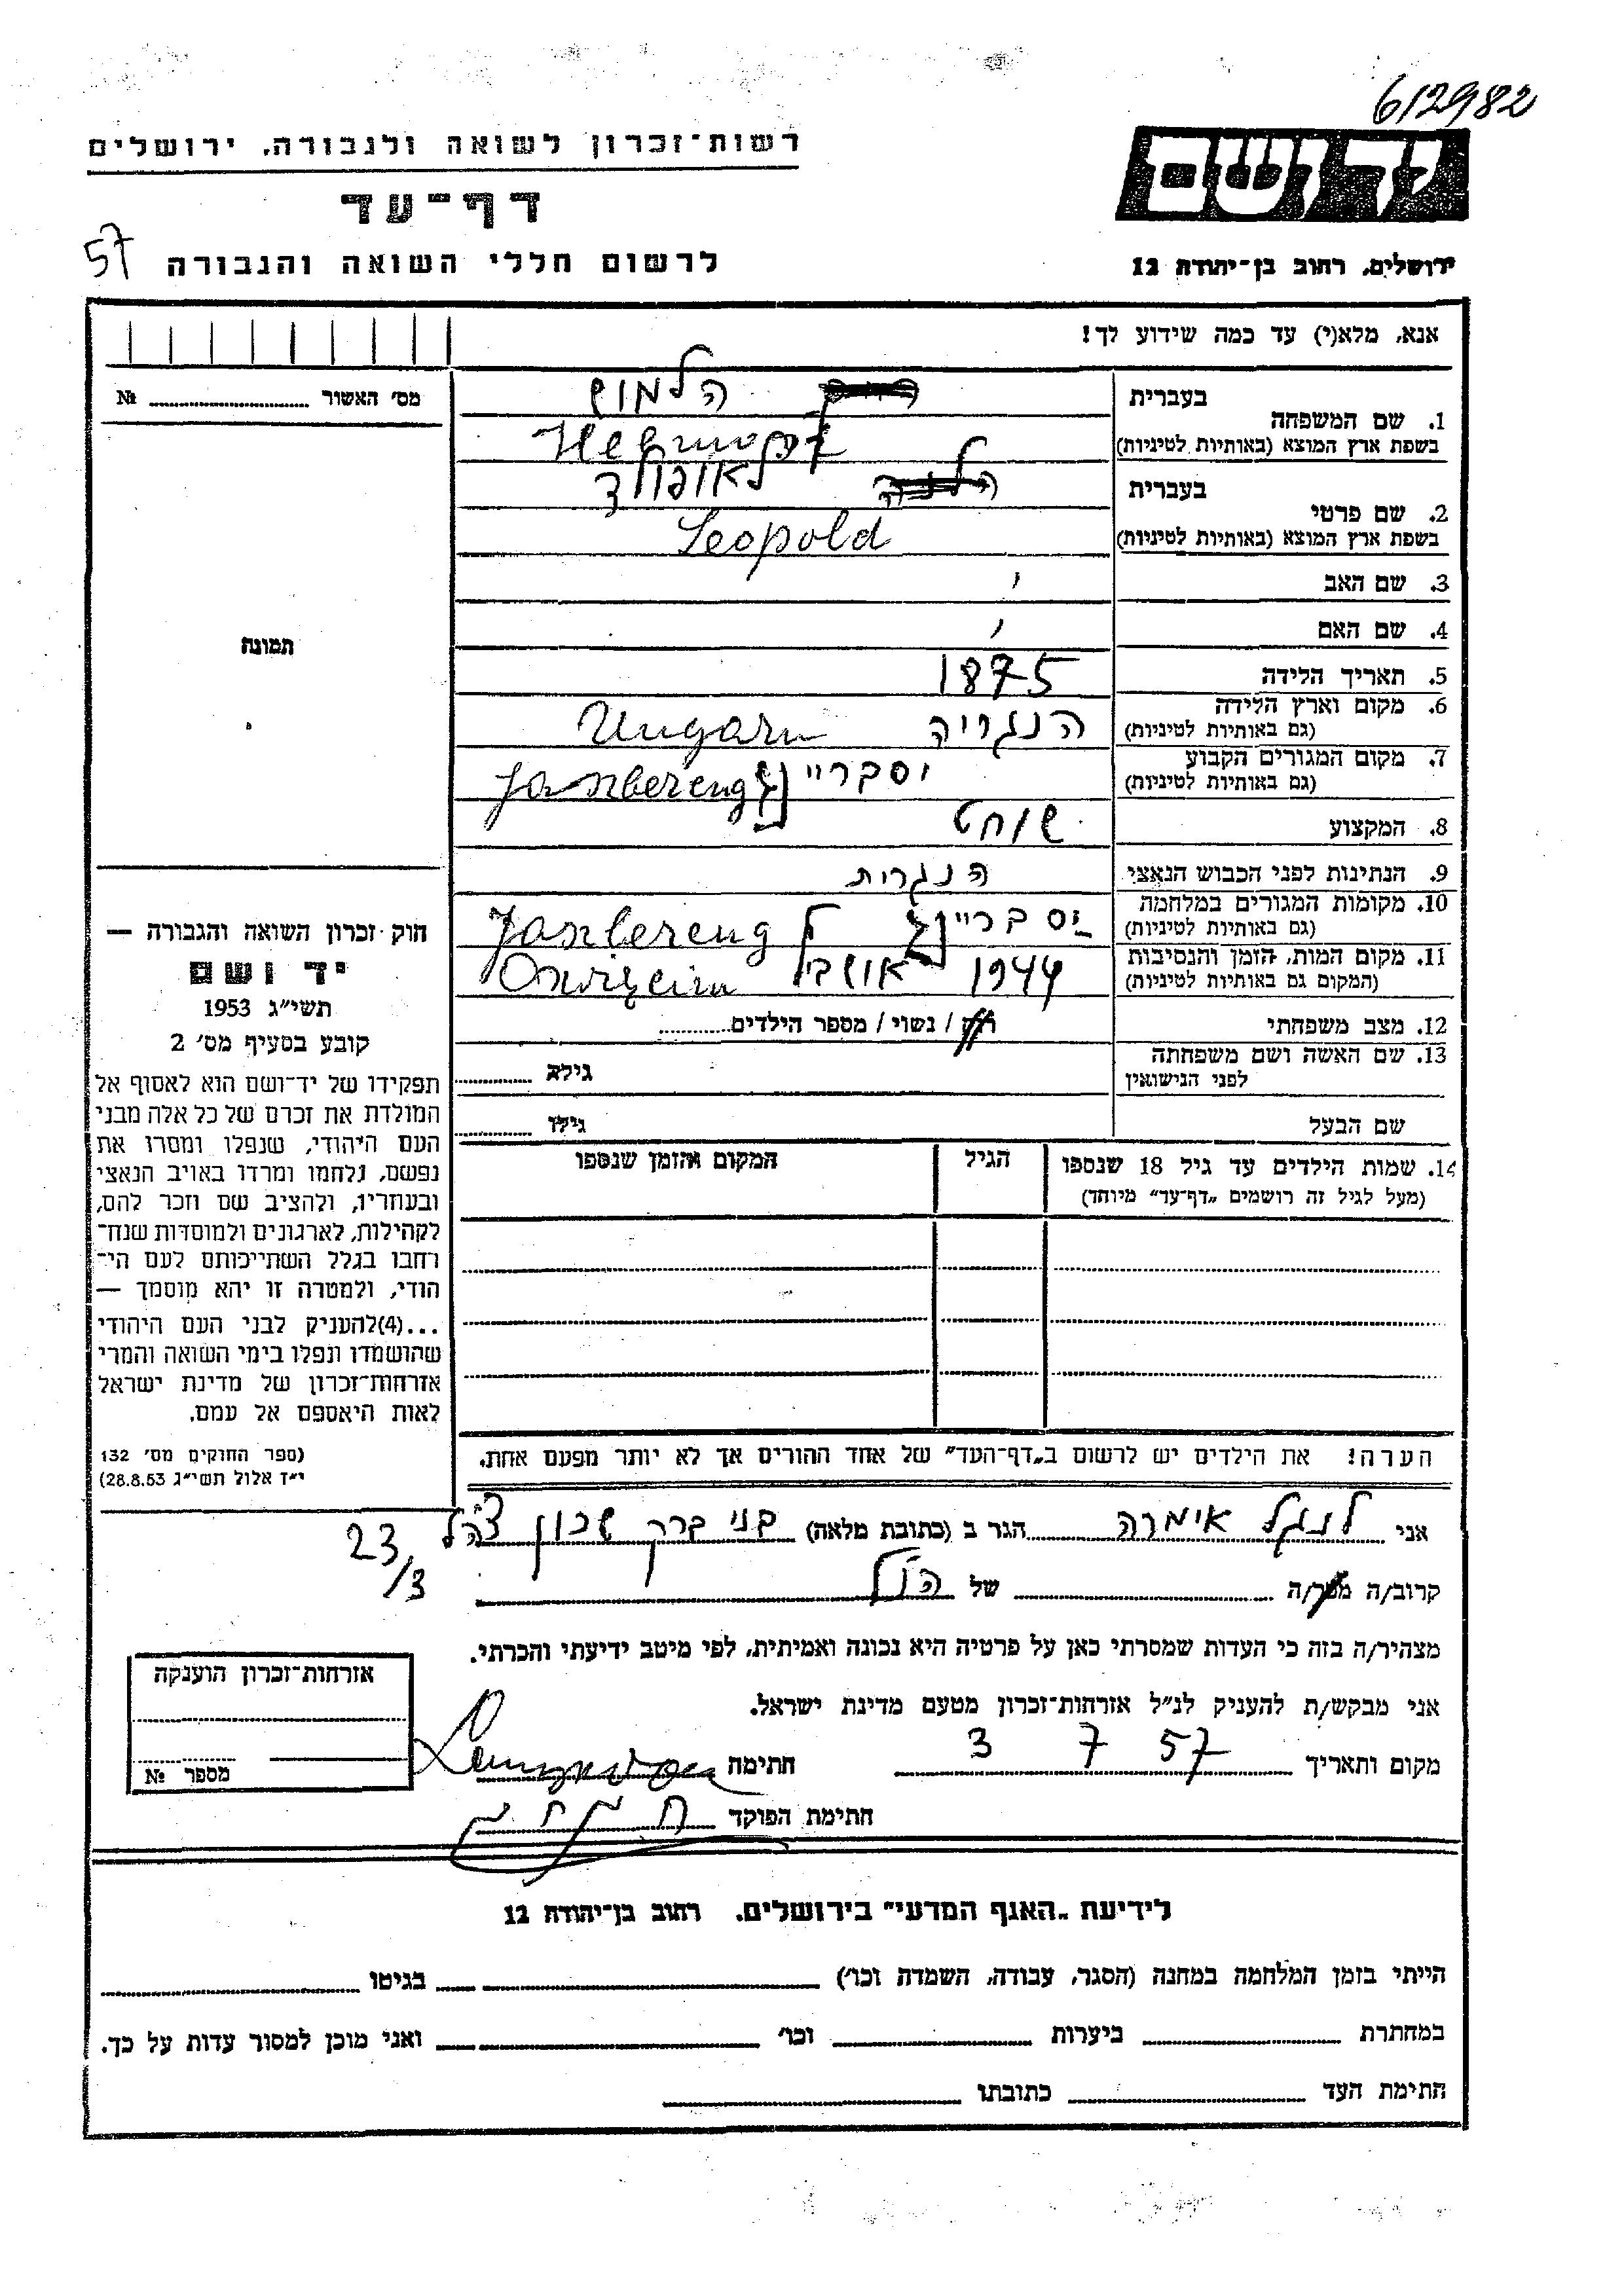 612982
רשות־זכרון לשואה ולגבורה, ירושלים
יד ושם
דף־עד
57
לרשום חללי השואה והגבורה
ירושלים, רחוב בן־יהודה 12
אנא, מלא(י) עד כמה שידוע לך!
מס׳ האשור № 
1. שם המשפחה
בעברית
הלמוש
בשפת ארץ המוצא (באותיות לטיניות)
2. שם פרטי
בעברית
לאופולד
בשפת ארץ המוצא (באותיות לטיניות)
Leopold
3. שם האב
4. שם האם
תמונה
5. תאריך הלידה 1875
6. מקום וארץ הלידה
(גם באותיות לטיניות)
הנגריה Ungarn
7. מקום המגורים הקבוע
(גם באותיות לטיניות)
8. המקצוע שוחט
9. הנתינות לפני הכבוש הנאצי הנגרית
10. מקומות המגורים במלחמה
(גם באותיות לטיניות)
Jasbereng
11. מקום המות, הזמן והנסיבות
(המקום גם באותיות לטיניות)
1944
12. מצב משפחתי רוק / נשוי / מספר הילדים
13. שם האשה ושם משפחתה
לפני הנישואין
גילה
שם הבעל
גילו
14. שמות הילדים עד גיל 18 שנספו
(מעל לגיל זה רושמים „דף־עד״ מיוחד)
הגיל
המקום והזמן שנספו
הערה! את הילדים יש לרשום ב„דף־העד״ של אחד ההורים אך לא יותר מפעם אחת.
חוק זכרון השואה והגבורה —
יד ושם
תשי״ג 1953
קובע בסעיף מס׳ 2
תפקידו של יד־ושם הוא לאסוף אל
המולדת את זכרם של כל אלה מבני
העם היהודי, שנפלו ומסרו את
נפשם, נלחמו ומרדו באויב הנאצי
ובעוזריו, ולהציב שם וזכר להם,
לקהילות, לארגונים ולמוסדות שנח־
רבו בגלל השתייכותם לעם הי־
הודי, ולמטרה זו יהא מוסמך —
...(4)להעניק לבני העם היהודי
שהושמדו ונפלו בימי השואה והמרי
אזרחות־זכרון של מדינת ישראל
לאות היאספם אל עמם.
(ספר החוקים מס׳ 132
י״ד אלול תשי״ג 28.8.53)
אני לנגל אימרה הגר ב (כתובת מלאה) בני ברק שכון צהל 23/3
קרוב/ה מכר/ה של הנ״ל
מצהיר/ה בזה כי העדות שמסרתי כאן על פרטיה היא נכונה ואמיתית, לפי מיטב ידיעתי והכרתי.
אני מבקש/ת להעניק לנ״ל אזרחות־זכרון מטעם מדינת ישראל.
מקום ותאריך 3 7 57 חתימה
חתימת הפוקד
אזרחות־זכרון הוענקה
מספר №
לידיעת „האגף המדעי״ בירושלים, רחוב בן־יהודה 12
הייתי בזמן המלחמה במחנה (הסגר, עבודה, השמדה וכו׳) בגיטו
במחתרת ביערות וכו׳ ואני מוכן למסור עדות על כך.
חתימת העד כתובתו